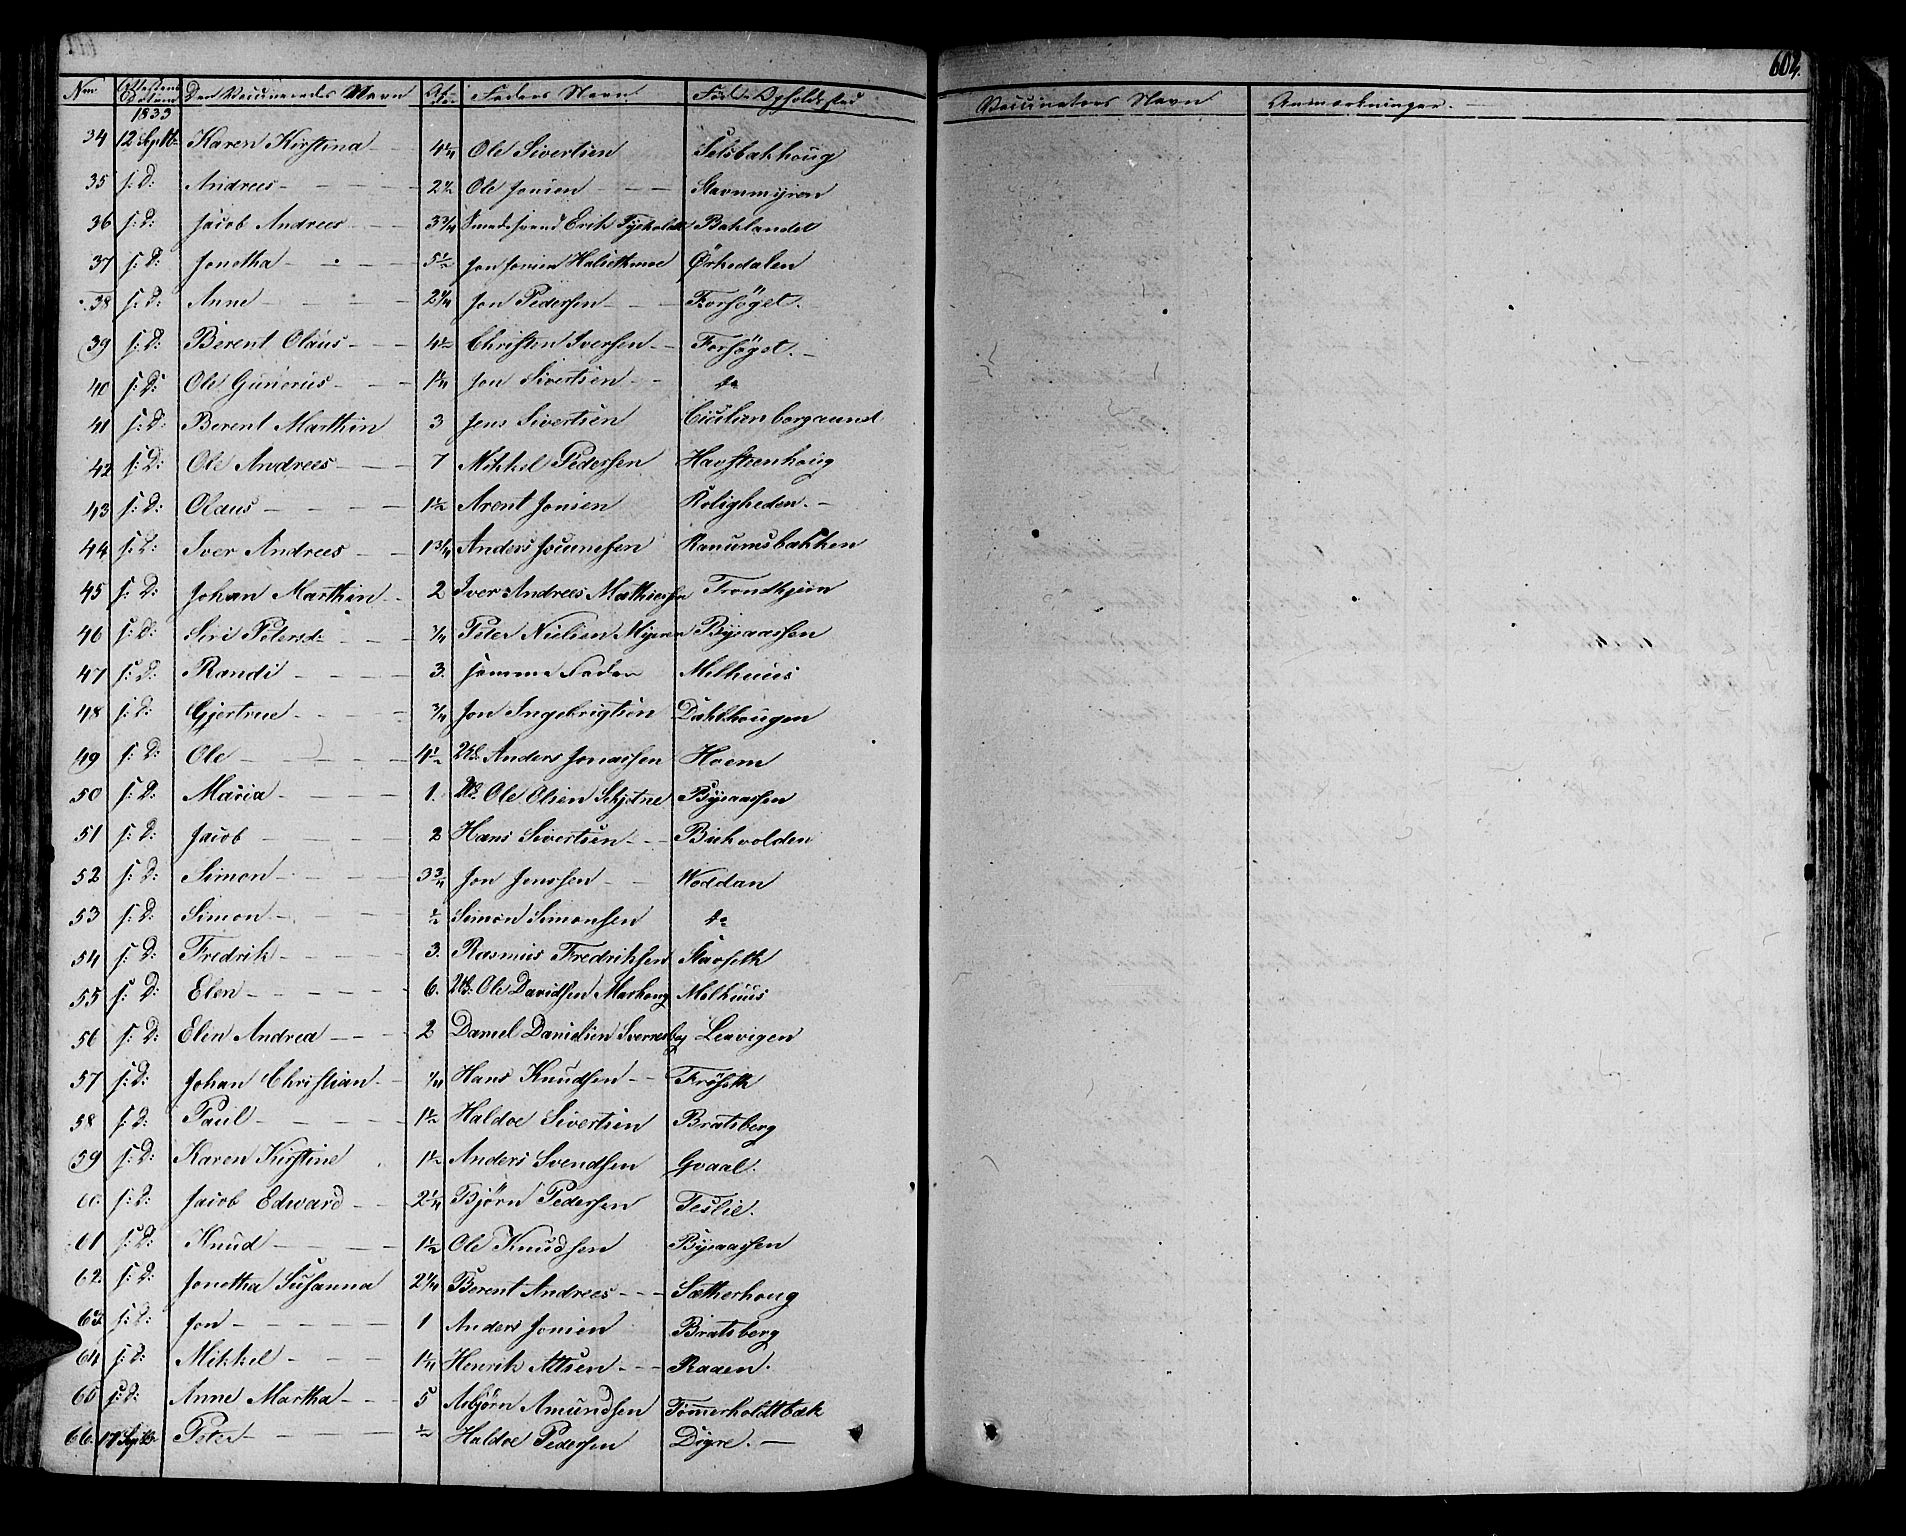 604.
Nrr Attestens Datum Den Vaccineredes Navn Alder Faders Navn Føde og Opholdssted Vaccinators Navn Anmærkninger. —
1833
34 12 Septb Karen Kirstina 4 1/4 Ole Sivertsen Selsbakhoug
35 s: D: Andreas 2 1/2 Ole Jonsen Stavnmyren
36 s: D: Jacob Andreas 3 3/4 Smedsvend Erik Tyeholdt Baklandet
37 s: D: Jonetha 5 1/2 Jon Jonsen Ørkedalen
38 s: D: Anne 2 1/4 Jon Pedersen Forsøget.
39 s: D: Berent Olaus 4 1/2 Christen Iversen Forsøget.
40 s: D: Ole Gunerius 1 1/4 Jon Sivertsen do
41 s: D: Berent Marthin 3 Jens Sivertsen Cicilienborgaunet
42 s: D: Ole Andreas 7 Mikkel Pedersen Havsteenhoug
43 s: D: Olaus 1 1/2 Arent Jonsen Roligheden.
44 s: D: Iver Andreas 1 3/4 Anders Ranumsbakken
45 s: D: Johan Marthin 2 Iver Andreas Mathiesen Trondhjem
46 s: D: Siri Petersdr 3/4 Peter Nielsen Myeren Byeaassen
47 s: D: Randi 3. samme Fader Melhuus
48 s: D: Gjertrue 3/4 Jon Ingebrigtsen Dahlhougen
49 s: D: Ole 4 1/2 Anders Jonassen Hoem
50 s: D: Maria 1. Ole Olsen Schjetne Byeaassen
51 s: D: Jacob 2 Hans Sivertsen
52 s: D: Simon 3 3/4 Jon Jenssen Woddan
53 s: D: Simon 1/2 Simon Simonsen do
54 s: D: Fredrik 3. Rasmus Fredriksen Stavseth
55 s: D: Elen 6. Ole Davidsen Melhuus
56 s: D: Elen Andrea 2 Daniel Danielsen Sverresby Leavigen
57 s: D: Johan Christian 1/4 Hans Knudsen Frøseth
58 s: D: Paul 1 1/2 Haldoe Sivertsen Bratsberg
59 s: D: Karen Kirstine 1 1/2 Anders Svendsen Qvaal.
60. s: D: Jacob Edward 2 1/4 Bjørn Pedersen Teslie.
61 s: D: Knud 1 1/2 Ole Knudsen Byeaassen
62. s: D: Jonetha Susanna 2 1/4 Berent Andreas Sætherhoug
63. s: D: Jon 1 Anders Jonsen Bratsberg
64 s: D: Mikkel 1 1/4 Henrik Raaen.
65 s: D: Anne Martha 5 Asbjørn Amundsen Tømerholdtbæk
66. 17 Septb Peter 1/2 Haldoe Pedersen Digre. —